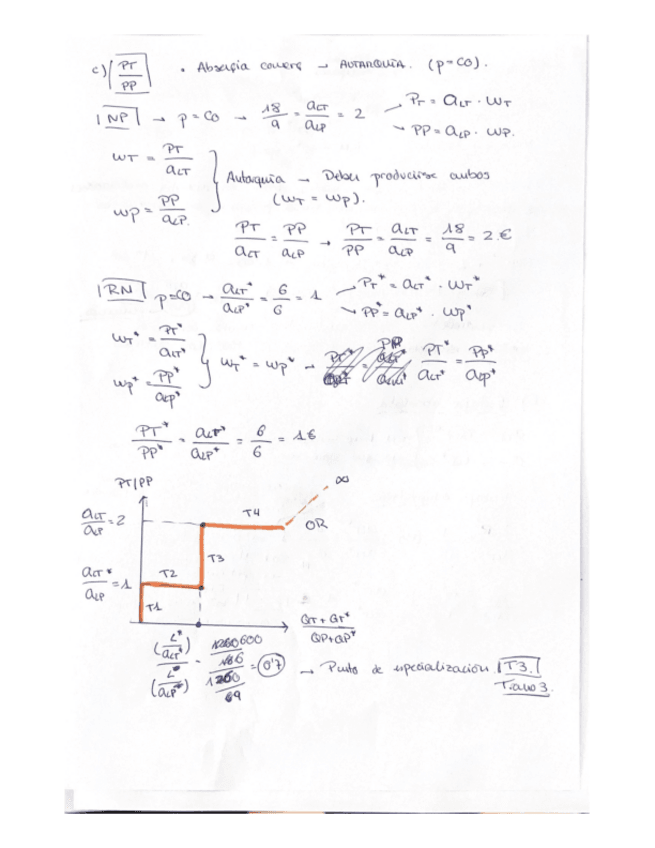 c) PT/PP • Absersia comers → AUTARQUÍA. (p=CO).
NP → p = CO → 18/9 = aLT/aLP = 2 → PT = aLT · WT
→ PP = aLP · WP.
WT = PT/aLT
Autarquía → Deben producirse ambos
(WT = WP).
WP = PP/aLP.
PT/aLT = PP/aLP → PT/PP = aLT/aLP = 18/9 = 2.€
RN p=CO → aLT*/aLP* = 6/6 = 1 → PT* = aLT* · WT*
→ PP* = aLP* · WP*
WT* = PT*/aLT*
WT* = WP* → PT*/aLT* = PP*/aLP*
WP* = PP*/aLP*
PT*/PP* = aLT*/aLP* = 6/6 = 1€
PT/PP
∞
aLT/aLP = 2
T4
OR
T3
aLT*/aLP = 1
T2
T1
QT + QT*/QP + QP*
(L*/aLT*)/(L*/aLP*) = 0'7 → Punto de especialización T3.
Tramo 3.